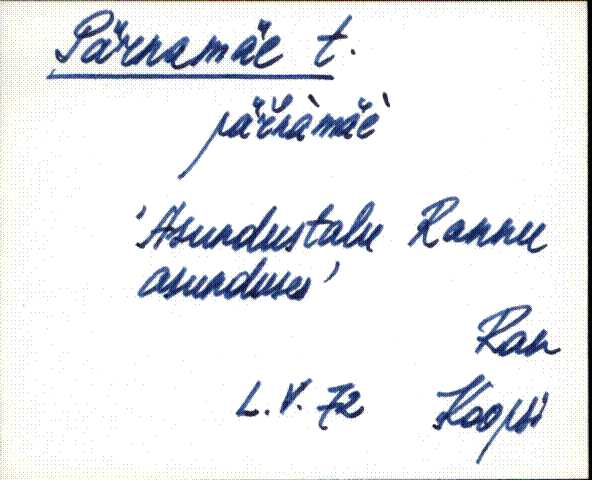 Pärnamäe t.
pär̆nàmäè
'Asundustalu Rannu
asunduses'
Ran
L.V. 72 Koopsi